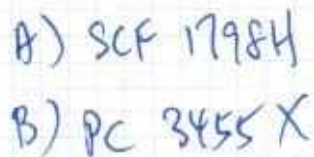 A) SCF 1798H
B) PC 3455 X